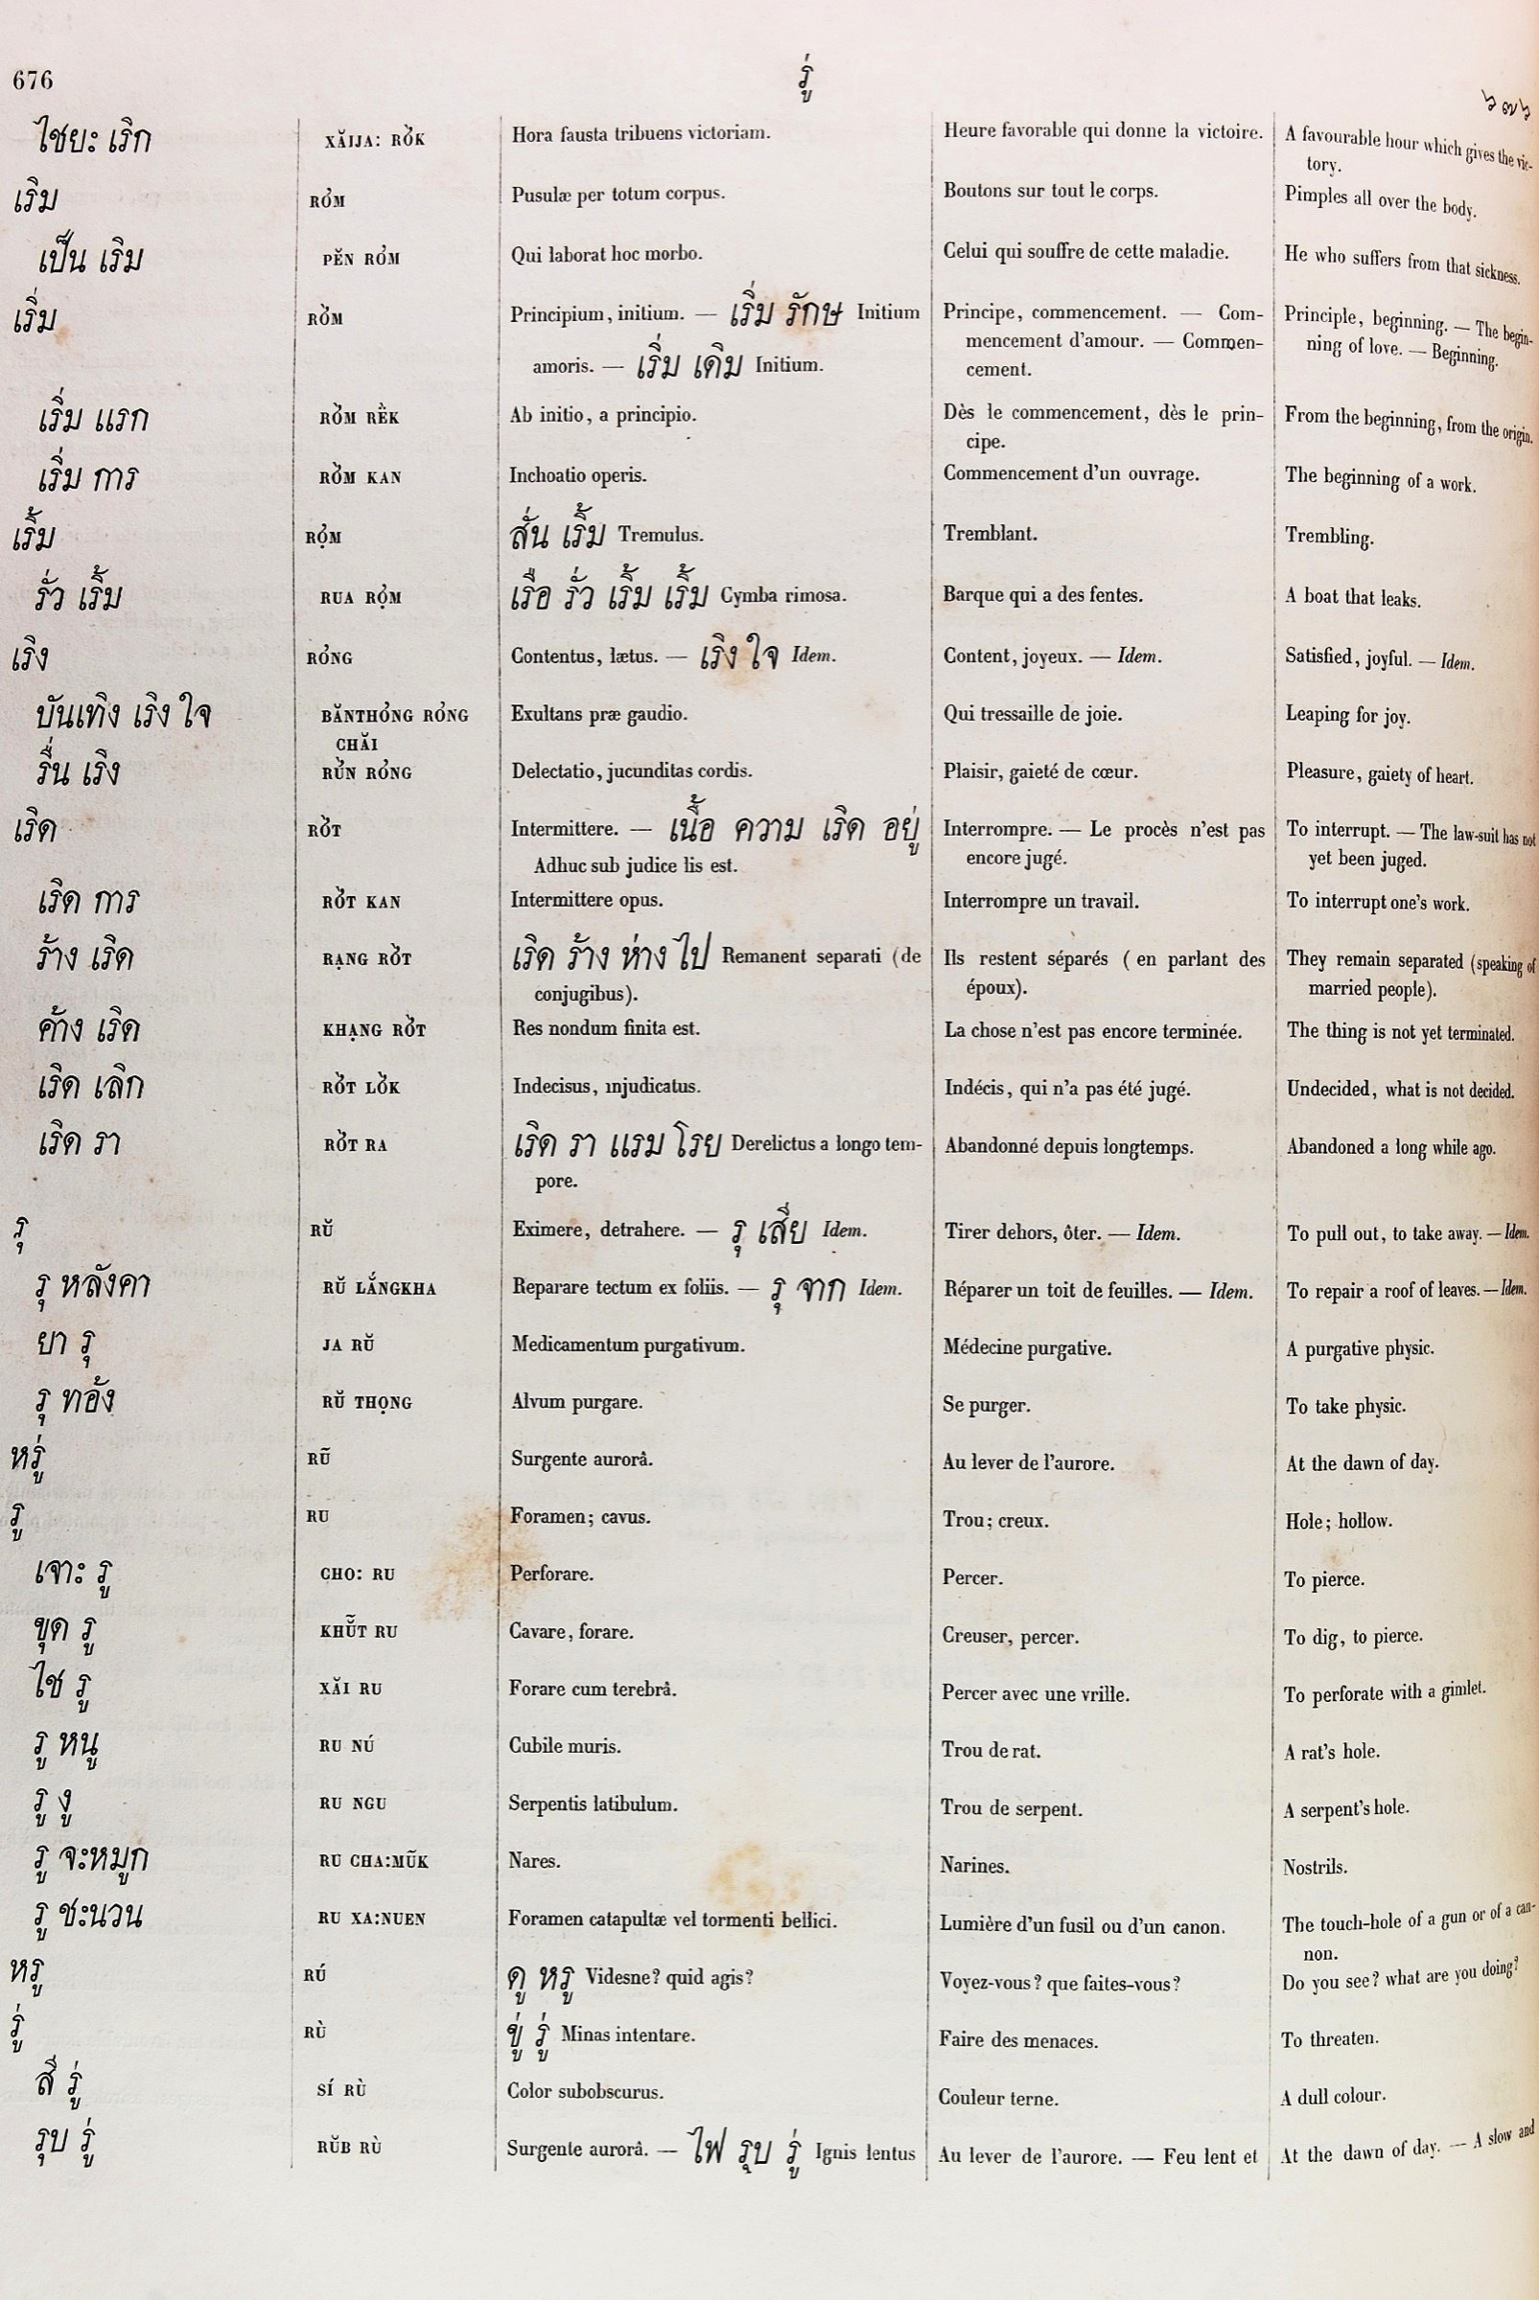 676
รู่
๖๗๖
ไชยะ เริก XĂIJA: RŎ̉K Hora fausta tribuens victoriam. Heure favorable qui donne la victoire. A favourable hour which gives the vic-
tory.
เริม RỎM Pusulæ per totum corpus. Boutons sur tout le corps. Pimples all over the body.
เป็น เริม PĔN RỎM Qui laborat hoc morbo. Celui qui souffre de cette maladie. He who suffers from that sickness.
เริ่ม RỎ̀M Principium, initium. — เริ่ม รักษ Initium Principe, commencement. — Com- Principle, beginning. — The begin-
amoris. — เริ่ม เดิม Initium. mencement d'amour. — Commen- ning of love. — Beginning.
cement.
เริ่ม แรก RỎ̀M RË̀K Ab initio, a principio. Dès le commencement, dès le prin- From the beginning, from the origin.
cipe.
เริ่ม การ RỎ̀M KAN Inchoatio operis. Commencement d'un ouvrage. The beginning of a work.
เริ้ม RỌ̉M สั่น เริ้ม Tremulus. Tremblant. Trembling.
รั่ว เริ้ม RUA RỌ̉M เรือ รั่ว เริ้ม เริ้ม Cymba rimosa. Barque qui a des fentes. A boat that leaks.
เริง RỎNG Contentus, lætus. — เริง ใจ Idem. Content, joyeux. — Idem. Satisfied, joyful. — Idem.
บันเทิง เริง ใจ BĂNTHỎNG RỎNG Exultans præ gaudio. Qui tressaille de joie. Leaping for joy.
CHĂI
รื่น เริง RỦ̀N RỎNG Delectatio, jucunditas cordis. Plaisir, gaieté de cœur. Pleasure, gaiety of heart.
เริด RỎ̀T Intermittere. — เนื้อ ความ เริด อยู่ Interrompre. — Le procès n'est pas To interrupt. — The law-suit has not
Adhuc sub judice lis est. encore jugé. yet been juged.
เริด การ RỎ̀T KAN Intermittere opus. Interrompre un travail. To interrupt one's work.
ร้าง เริด RẠNG RỎ̀T เริด ร้าง ห่าง ไป Remanent separati (de Ils restent séparés (en parlant des They remain separated (speaking of
conjugibus). époux). married people).
ค้าง เริด KHẠNG RỎ̀T Res nondum finita est. La chose n'est pas encore terminée. The thing is not yet terminated.
เริด เลิก RỎ̀T LỎ̀K Indecisus, injudicatus. Indécis, qui n'a pas été jugé. Undecided, what is not decided.
เริด รา RỎ̀T RA เริด รา แรม โรย Derelictus a longo tem- Abandonné depuis longtemps. Abandoned a long while ago.
pore.
รุ RŬ Eximere, detrahere. — รุ เสี่ย Idem. Tirer dehors, ôter. — Idem. To pull out, to take away. — Idem.
รุ หลังคา RŬ LẮNGKHA Reparare tectum ex foliis. — รุ จาก Idem. Réparer un toit de feuilles. — Idem. To repair a roof of leaves. — Idem.
ยา รุ JA RŬ Medicamentum purgativum. Médecine purgative. A purgative physic.
รุ ทอ้ง RŬ THỌNG Alvum purgare. Se purger. To take physic.
หรู่ RŨ Surgente aurorâ. Au lever de l'aurore. At the dawn of day.
รู RU Foramen; cavus. Trou; creux. Hole; hollow.
เจาะ รู CHO: RU Perforare. Percer. To pierce.
ขุด รู KHŬ̃T RU Cavare, forare. Creuser, percer. To dig, to pierce.
ไช รู XĂI RU Forare cum terebrâ. Percer avec une vrille. To perforate with a gimlet.
รู หนู RU NÚ Cubile muris. Trou de rat. A rat's hole.
รู งู RU NGU Serpentis latibulum. Trou de serpent. A serpent's hole.
รู จะหมูก RU CHA:MŨK Nares. Narines. Nostrils.
รู ชะนวน RU XA:NUEN Foramen catapultæ vel tormenti bellici. Lumière d'un fusil ou d'un canon. The touch-hole of a gun or of a can-
non.
หรู RÚ ดู หรู Videsne? quid agis? Voyez-vous? que faites-vous? Do you see? what are you doing?
รู่ RÙ ขู่ รู่ Minas intentare. Faire des menaces. To threaten.
สี รู่ SÍ RÙ Color subobscurus. Couleur terne. A dull colour.
รุบ รู่ RŬB RÙ Surgente aurorâ. — ไฟ รุบ รู่ Ignis lentus Au lever de l'aurore. — Feu lent et At the dawn of day. — A slow and